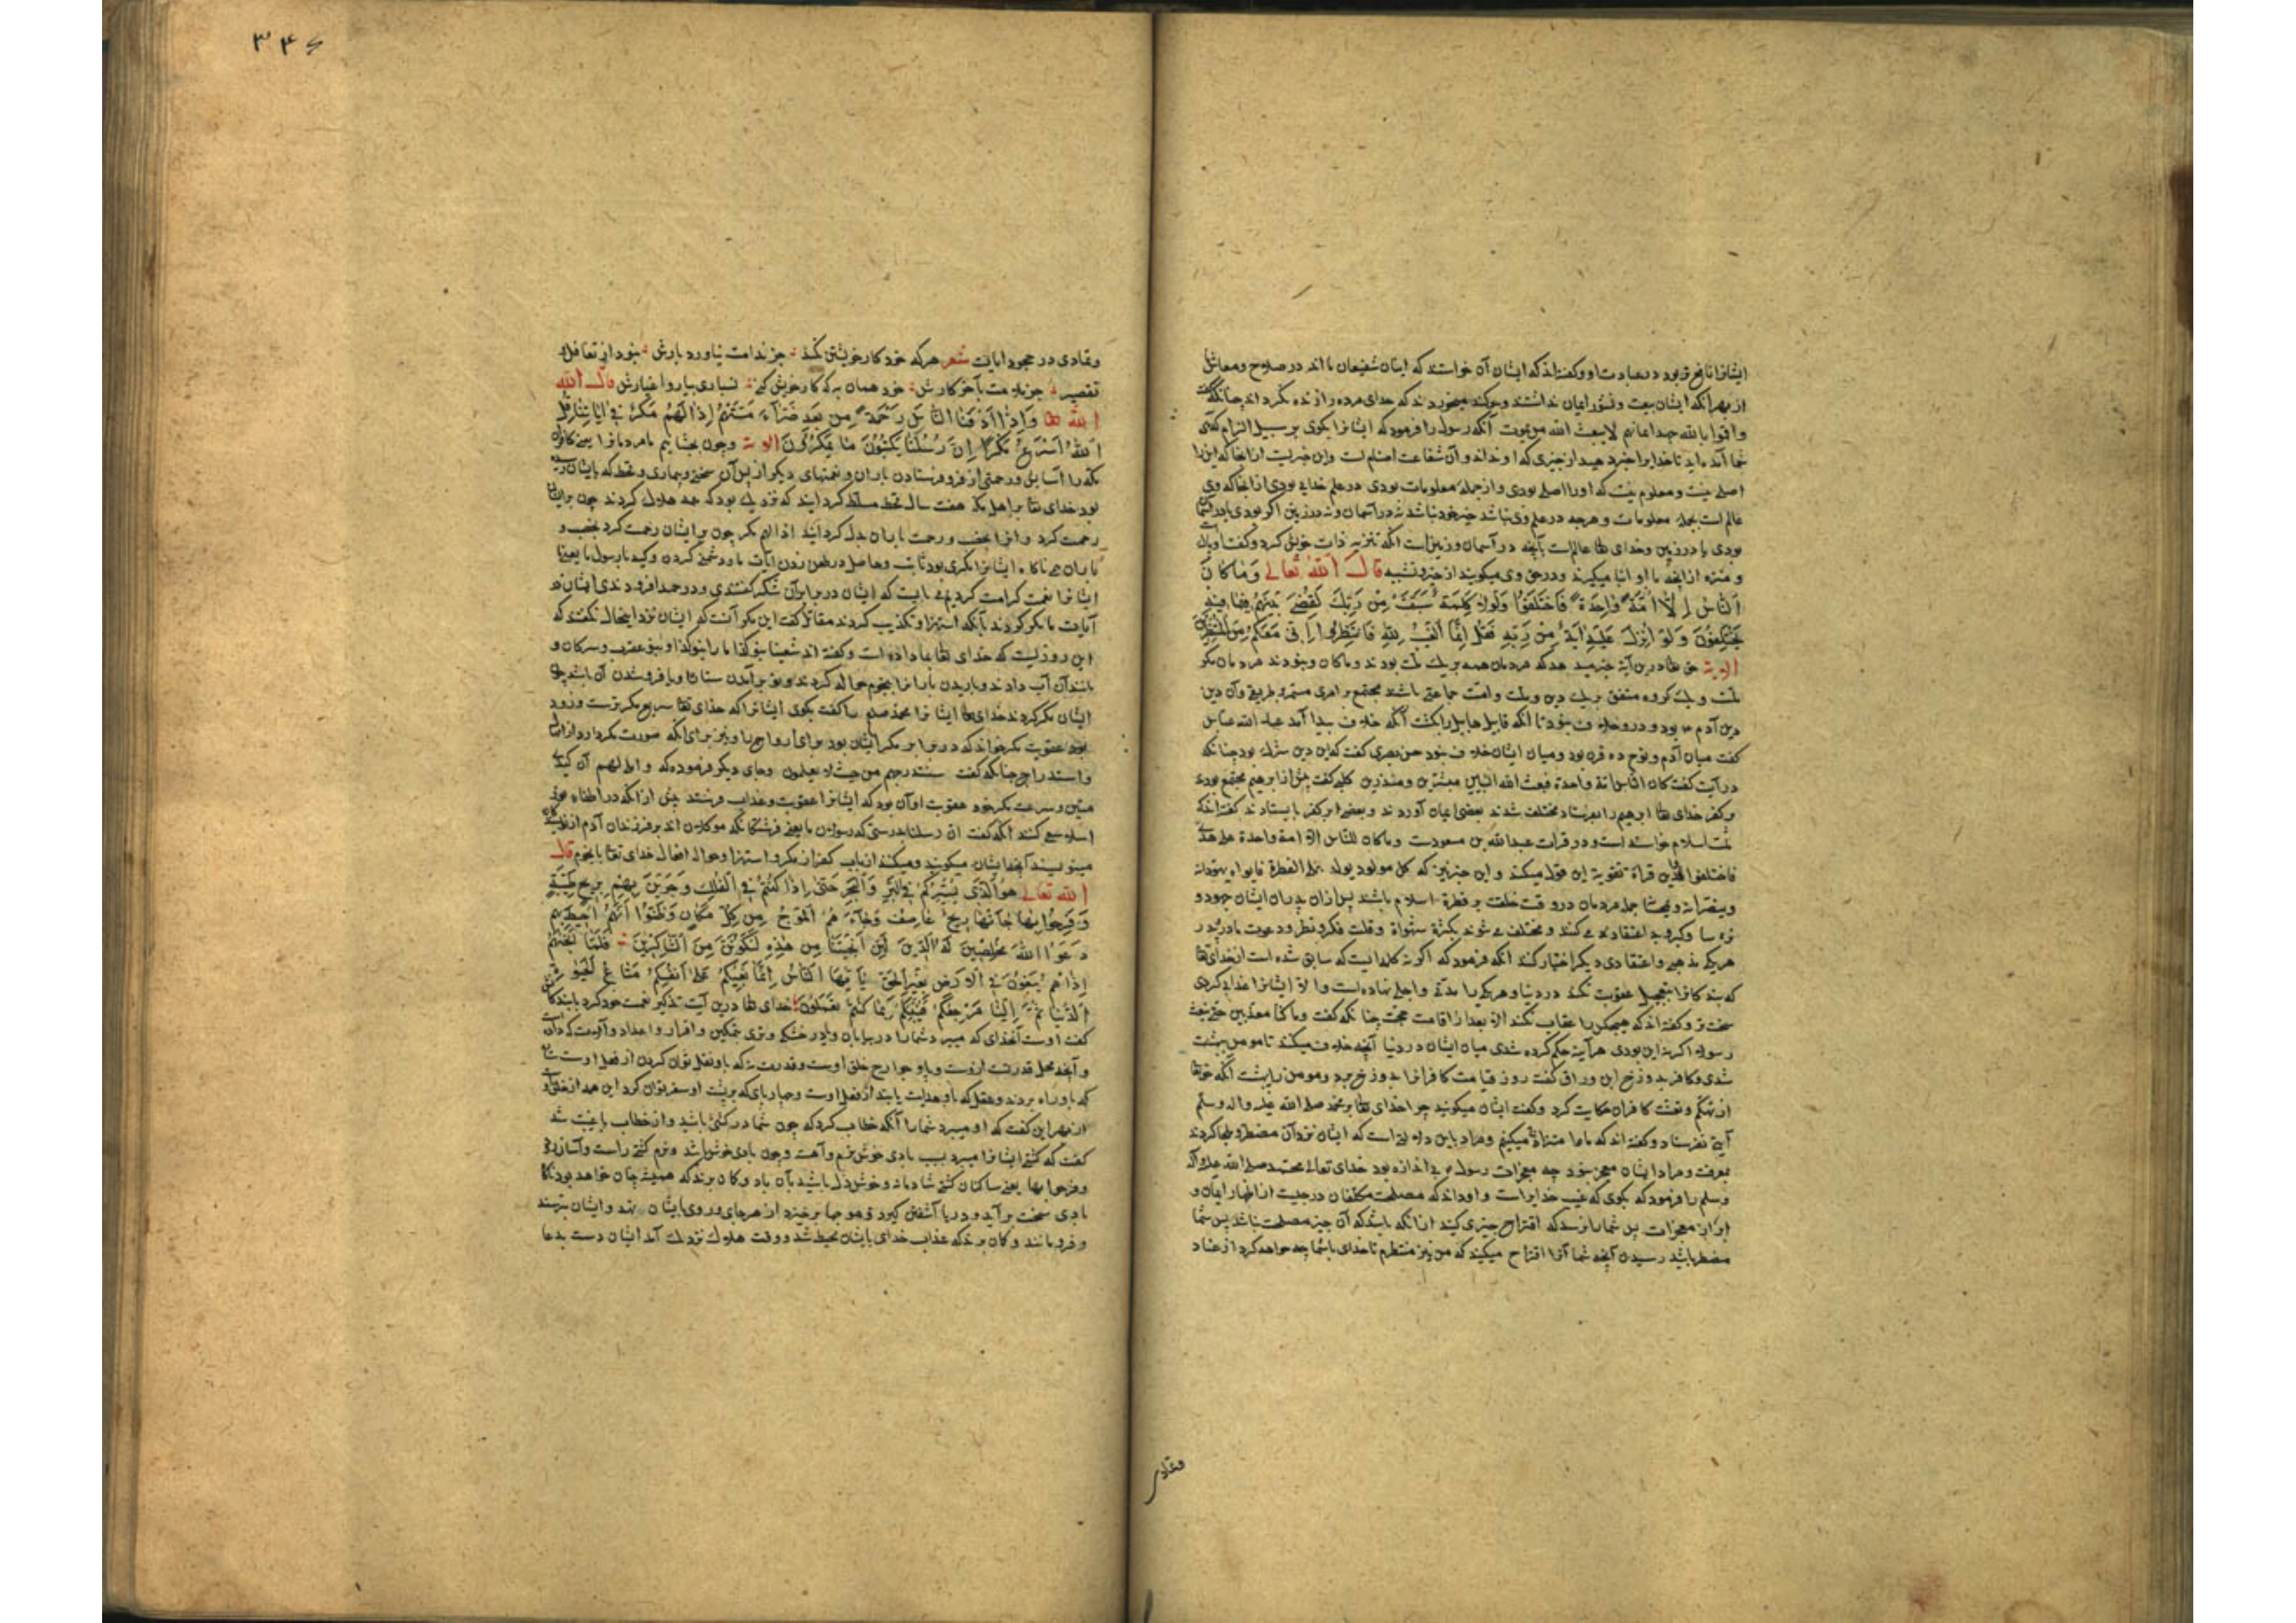 ایشانرا نافع تر بود در عبادت او و گفته‌اند که ایشان آن خواستند که ایشان شفیعان ما اند در صلاح و معاش
از بهر آنکه ایشان ببعث و نشور ایمان نداشتند و سوکند میخوردند که خدای مرده را زنده نکرداند چنانکه گفت
و اقسموا بالله جهد ایمانهم لا یبعث الله من یموت آنکه رسول را فرمود که ایشانرا بکوی بر سبیل الزام که
شما آمده‌اید تا خدایرا خبر دهید از چیزی که او نداند و آن شفاعت اصنام است و این خبریست از آنجا که این را
اصلی نیست و معلوم نیست که اورا اصلی بودی و از جمله معلومات بودی در علم خدای بودی از آنجا که وی
عالم است بجمله معلومات و هرچه در علم وی نباشد چیز خود نباشد نه در آسمان و نه در زمین اکر بودی یا در آسمان
بودی یا در زمین و خدای تعا عالم است بآنچه در آسمان و زمین است آنکه تنزیه ذات خویش کرد و گفت او پاک
و منزه از آنچه با او انباز میکیرند و در حق وی میکویند از جبر و تشبیه قال الله تعالی وَمَا كَانَ
النَّاسُ إِلَّا أُمَّةً وَاحِدَةً فَاخْتَلَفُوا وَلَوْلَا كَلِمَةٌ سَبَقَتْ مِن رَبِّكَ لَقُضِيَ بَيْنَهُمْ فِيمَا فِيهِ
يَخْتَلِفُونَ وَلَوْ أُنْزِلَ عَلَيْهِ آيَةٌ مِنْ رَبِّهِ فَقُلْ إِنَّمَا الْغَيْبُ لِلَّهِ فَانْتَظِرُوا إِنِّي مَعَكُمْ مِنَ الْمُنْتَظِرِينَ
الایة حق تعا درین آیة خبر میدهد که مردمان همه بر یک ملت بودند و ماکان و نبودند مردمان مکر
ملت و یک کروه متفق بر یک دین و ملت و امت جماعتی باشند مجتمع بر امری مستمر و طریقی و آن دین
دین آدم بود و درو خلاف نبود تا آنکه قابیل هابیل را بکشت آنکه خلاف پیدا آمد عبدالله عباس
گفت میان آدم و نوح ده قرن بود و میان ایشان خلاف نبود حسن بصری گفت که این دین شرک بود چنانکه
در آیت گفت کان الناس امة واحدة فبعث الله النبیین مبشرین و منذرین کلبی گفت پیش از ابرهیم مجتمع بودند
بر کفر خدای تعا ابرهیم را بفرستاد مختلف شدند بعضی ایمان آوردند و بعضی بر کفر بایستادند گفته‌اند که
ملت اسلام خواسته است و در قراءت عبدالله بن مسعودست و ماکان للناس الا امة واحدة علی هدی
فاختلفوا این قراءة تقویت این قول میکند و این خبر نیز که کل مولود یولد علی الفطرة فابواه یهودانه
وینصرانه ویمجسانه جمله مردمان در وقت خلقت بر فطرة اسلام باشند پس از آن پدران ایشان جهود و
ترسا و کبر و بد اعتقاد می کنند و مختلف می شوند بکثرة شهوات و قلت فکر و نظر و دعوت مادر و پدر
هر یکی مذهبی و اعتقادی دیکر اختیار کنند آنکه فرمود که اکر نه کلمه ایست که سابق شده است از خدای تعا
که بندکانرا بتعجیل عقوبت نکند در دنیا و هر یکی را مدتی و اجلی نهاده است و الا ایشانرا عذاب کردی
سخت تر و گفته‌اند که هیچکس را عقاب نکند الا بعد از اقامت حجت چنانکه گفت وما کنا معذبین حتی نبعث
رسولا اکر نه این بودی هر آینه حکم کرده شدی میان ایشان در دنیا آنچه خلاف میکنند تا مومن ببهشت
شدی و کافر بدوزخ ابن وراق گفت روز قیامت کافرانرا بدوزخ برد و مومنان را ببهشت آنکه حق تعا
از تحکم و تعنت کافران حکایت کرد و گفت ایشان میکویند چرا خدای تعا بر محمد صلی الله علیه واله وسلم
آیتی نفرستاد و گفته‌اند که ماها متنازع میکنیم و مراد باین دلالتی است که ایشان نزد آن مضطر و ملجا کردند
بمعرفت و مراد ایشان معجز نبود چه معجزات رسول بی اندازه بود خدای تعالی محمد صلی الله علیه واله
وسلم را فرمود که بکوی که غیب خدایراست و او داند که مصلحت مکلفان در چیست از اظهار ایمان و
ابراز معجزات پس شما را نرسد که اقتراح چیزی کنید از آنکه باشد که آن چیز مصلحت نباشد پس شما
منتظر باشید رسیدن آنچه شما آنرا اقتراح میکنید که من نیز منتظرم تا خدای باشما چه خواهد کرد از عناد
وتمادی
۳۴۶
وتمادی در جحود ایات شعر هرکه خود کار خویشتن نکند جز ندامت نیاورد بارش نبود از تغافل و
تقصیر جز ملامت بآخر کارش خود همان به که کار خویش کنی نسپاری بیار و اغیارش قال الله
الله تعا وَإِذَا أَذَقْنَا النَّاسَ رَحْمَةً مِنْ بَعْدِ ضَرَّاءَ مَسَّتْهُمْ إِذَا لَهُمْ مَكْرٌ فِي آيَاتِنَا قُلِ
اللَّهُ أَسْرَعُ مَكْرًا إِنَّ رُسُلَنَا يَكْتُبُونَ مَا تَمْكُرُونَ الایة و چون بچشانیم ما مردمانرا یعنی کافران
مکه را آسایش و رحمتی از فرو فرستادن باران و نعمتهای دیکر از پس آن سختی و بیماری و قحط که بایشان رسیده
بود خدای تعا بر اهل مکه هفت سال قحط مسلط کردانید که نزدیک بود که همه هلاک کردند چون بر ایشان
رحمت کرد و انرا بخصب و رحمت باران بدل کردانید اذا لهم مکر چون بر ایشان رحمت کرد بخصب و
باران همی ناکاه ایشانرا مکری بود ثابت و حاصل در طعن زدن آیات ما و دشمنی کردن و کید با رسول ما یعنی ما
ایشانرا نعمت کرامت کردیم می بایست که ایشان در برابر آن شکر گفتندی و در حمد افزودندی ایشان در
آیات ما مکر کردند بآنکه استهزا و تکذیب کردند مقاتل گفت این مکر آنست که ایشان نزد اینحال نگفتند که
این روزیست که خدای تعا بما داده است و گفته اند سقینا بنوء کذا ما را بنوء کذا و بنوء عقرب و سرطان و
مانند آن آب دادند و باریدن بارانرا بنجوم حواله کردند و نوء برآمدن ستاره یا فروشدن آن باشد چون
ایشان مکر کردند خدای تعا ایشانرا محمد صلعم را گفت بکوی ایشانرا که خدای تعا سریع مکر ترست و زود
بود عقوبت مکر خواند که در برابر مکر ایشان بود برای ازدواج را و نیز برای آنکه صورت مکر دارد از املا
و استدراج چنانکه گفت سنستدرجهم من حیث لا یعلمون و جای دیکر فرموده که و املی لهم ان کیدی
متین و سرعت مکر خود عقوبت او آن بود که ایشانرا عقوبت و عذاب فرستد پیش از آنکه در اطفاء نور
اسلام سعی کنند آنکه گفت ان رسلنا بدرستی که رسولان ما یعنی فرشتکانکه موکلان اند بر فرزندان آدم
مینویسند آنچه ایشان میکویند و میکنند از باب کفر از مکر و استهزا و حواله افعال خدای تعا با نجوم قال
الله تعالی هُوَ الَّذِي يُسَيِّرُكُمْ فِي الْبَرِّ وَالْبَحْرِ حَتَّى إِذَا كُنْتُمْ فِي الْفُلْكِ وَجَرَيْنَ بِهِمْ بِرِيحٍ طَيِّبَةٍ
وَفَرِحُوا بِهَا جَاءَتْهَا رِيحٌ عَاصِفٌ وَجَاءَهُمُ الْمَوْجُ مِنْ كُلِّ مَكَانٍ وَظَنُّوا أَنَّهُمْ أُحِيطَ بِهِمْ
دَعَوُا اللَّهَ مُخْلِصِينَ لَهُ الدِّينَ لَئِنْ أَنْجَيْتَنَا مِنْ هَذِهِ لَنَكُونَنَّ مِنَ الشَّاكِرِينَ فَلَمَّا أَنْجَاهُمْ
إِذَا هُمْ يَبْغُونَ فِي الْأَرْضِ بِغَيْرِ الْحَقِّ يَا أَيُّهَا النَّاسُ إِنَّمَا بَغْيُكُمْ عَلَى أَنْفُسِكُمْ مَتَاعَ الْحَيَاةِ
الدُّنْيَا ثُمَّ إِلَيْنَا مَرْجِعُكُمْ فَنُنَبِّئُكُمْ بِمَا كُنْتُمْ تَعْمَلُونَ خدای تعا درین آیت تذکیر نعمت خود کرد بابندکان
گفت اوست آنخدای که میبرد شما را در بیابان و دریا در خشکی و تری بتمکین و اقدار و اعداد و آلت که دادست
و آنچه محل قدرتست ازوست و پای و جوارح خلق اوست و قدرت که باو نقل توان کردن از فعل اوست
که باو راه برند و عقل که باو هدایت یابند از فعل اوست و چهارپای که بر پشت او سفر توان کرد این همه از خلق او
از بهر این گفت که او میبرد شما را آنکه خطاب کرد که چون شما در کشتی باشید و از خطاب با غیبت شد
گفت که کشتی ایشانرا میبرد بسبب بادی خوش نرم و آهسته و چون بادی خوش باشد و نرم کشتی راست و آسان رود
وفرحوا بها یعنی ساکنان کشتی شادمانه و خوش‌دل باشند بآن باد و کمان برند که همیشه چنان خواهد بود ناکاه
بادی سخت برآید و دریا آشفتن کیرد و موجها برخیزد از هر جای و روی بایشان نهد و ایشان بترسند
و فرو مانند و کمان برند که عذاب خدای بایشان محیط شد و وقت هلاک نزدیک آمد ایشان دست بدعا